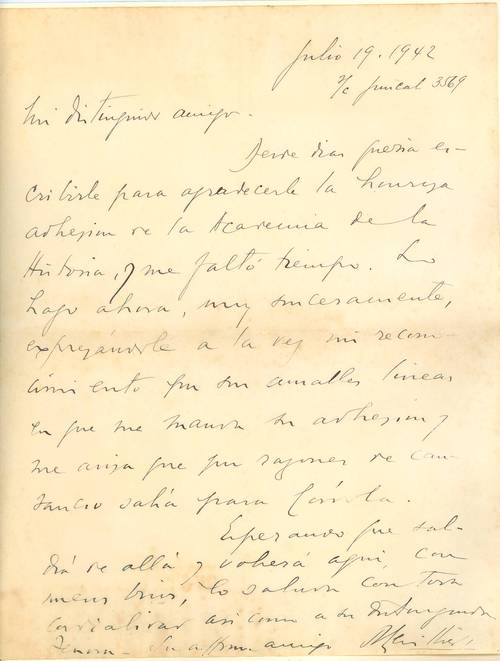 Julio 19. 1942
s/c Juncal 3569
Mi distinguido amigo.
Desde días quería es-
cribirle para agradecerle la honrosa
adhesion de la Academia de la
Historia, y me faltó tiempo. Lo
hago ahora, muy sinceramente,
expresándole a la vez mi recono-
cimiento por sus amables lineas
en que me manda su adhesion y
me avisa que por razones de can-
sancio salía para Córdoba.
Esperando que sal-
drá de allá y volverá aquí, con
nuevos bríos, lo saluda con toda
cordialidad asi como a su distinguida
Senora - Su affmo. amigo